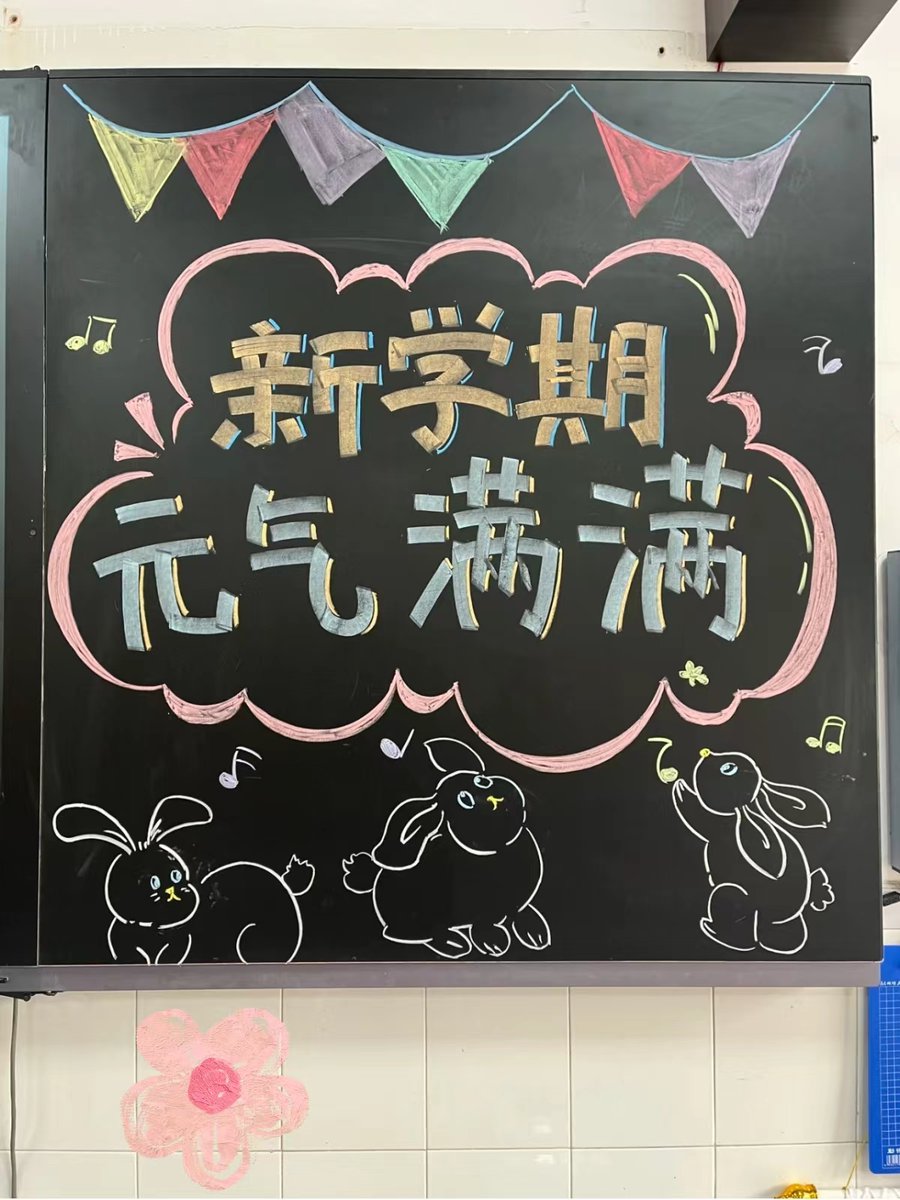 新学期
元气满满